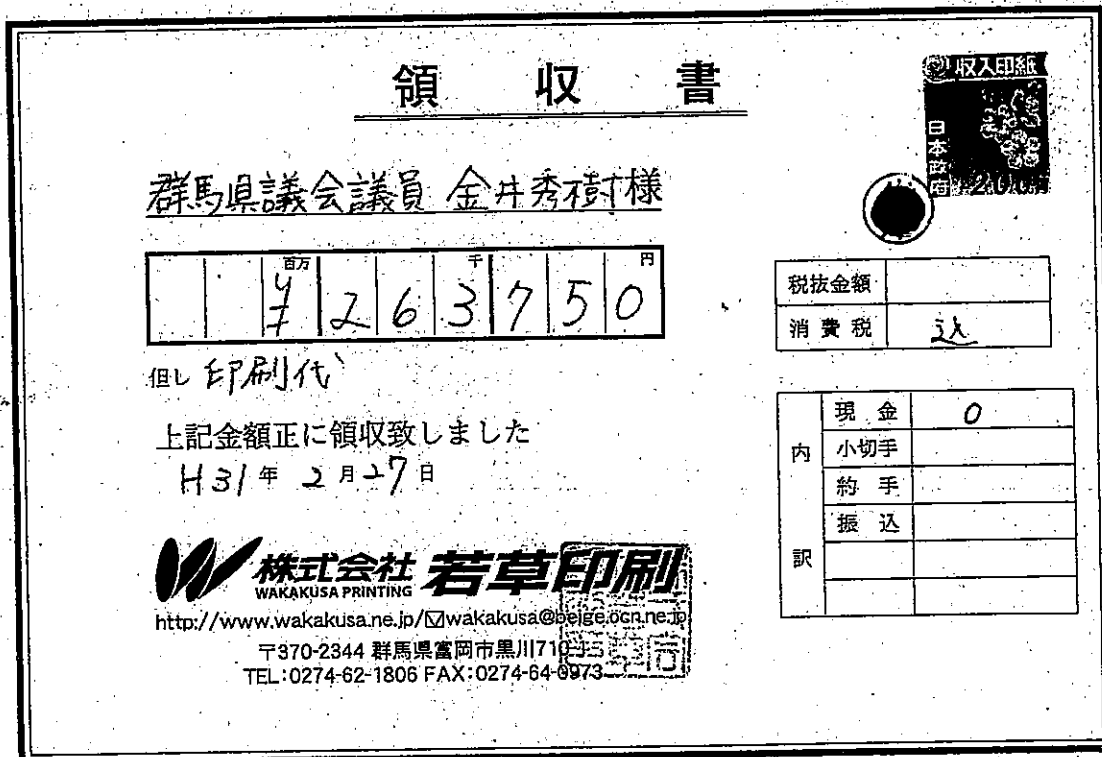 領 収 書
収入印紙
日本政府
200
群馬県議会議員 金井秀樹様
百万 千 円
¥ 2 6 3 7 5 0
税抜金額
消費税 込
但し 印刷代
上記金額正に領収致しました
H31年 2月27日
内訳
現金 0
小切手
約手
振込
株式会社 若草印刷
WAKAKUSA PRINTING
http://www.wakakusa.ne.jp/ wakakusa@beige.ocn.ne.jp
〒370-2344 群馬県富岡市黒川710
TEL:0274-62-1806 FAX:0274-64-0973